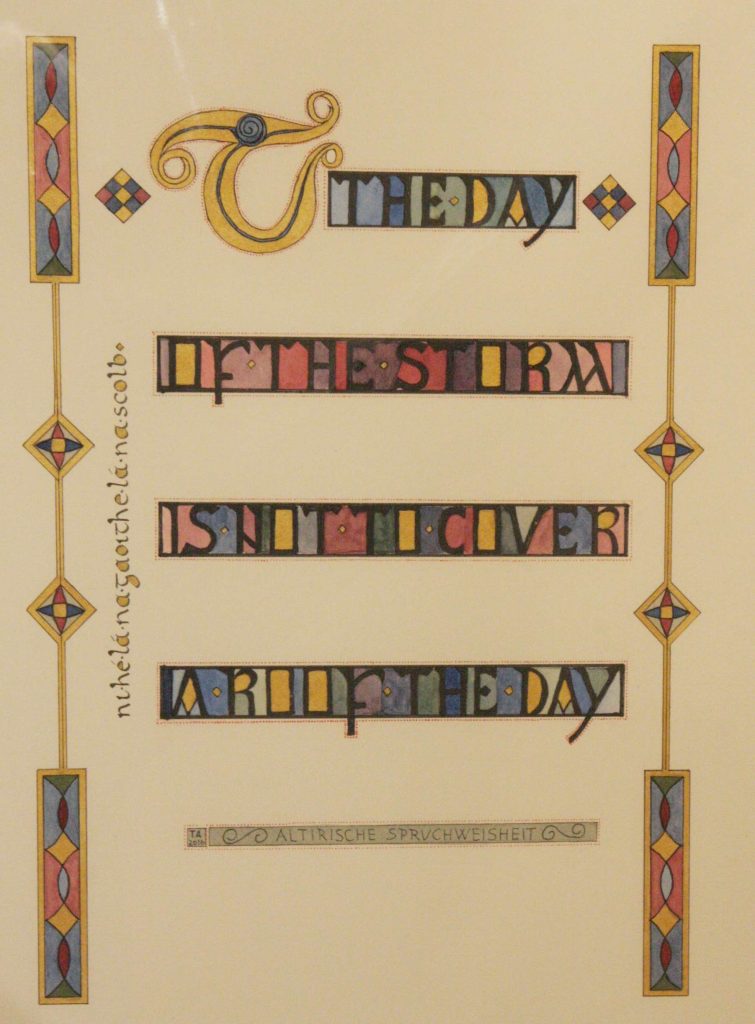 T THE·DAY
OF·THE·STORM
IS·NOT·TO·COVER
A·ROOF·THE·DAY
ní·hé·lá·na·gaoithe·lá·na·scolb·
TA
2016
ALTIRISCHE SPRUCHWEISHEIT